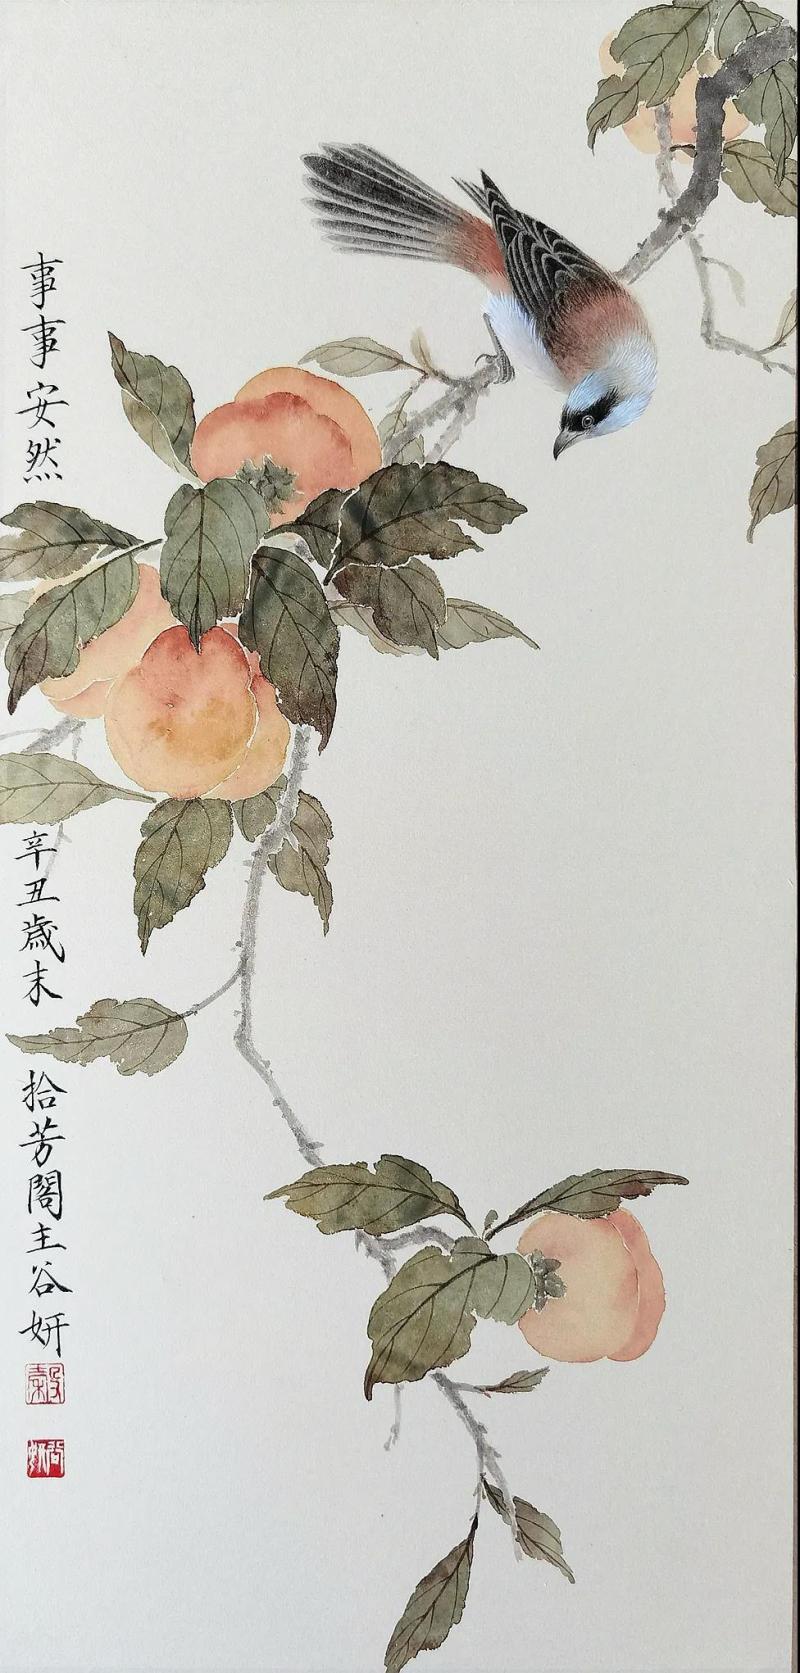 事事安然
辛丑歲末 拾芳閣主谷妍